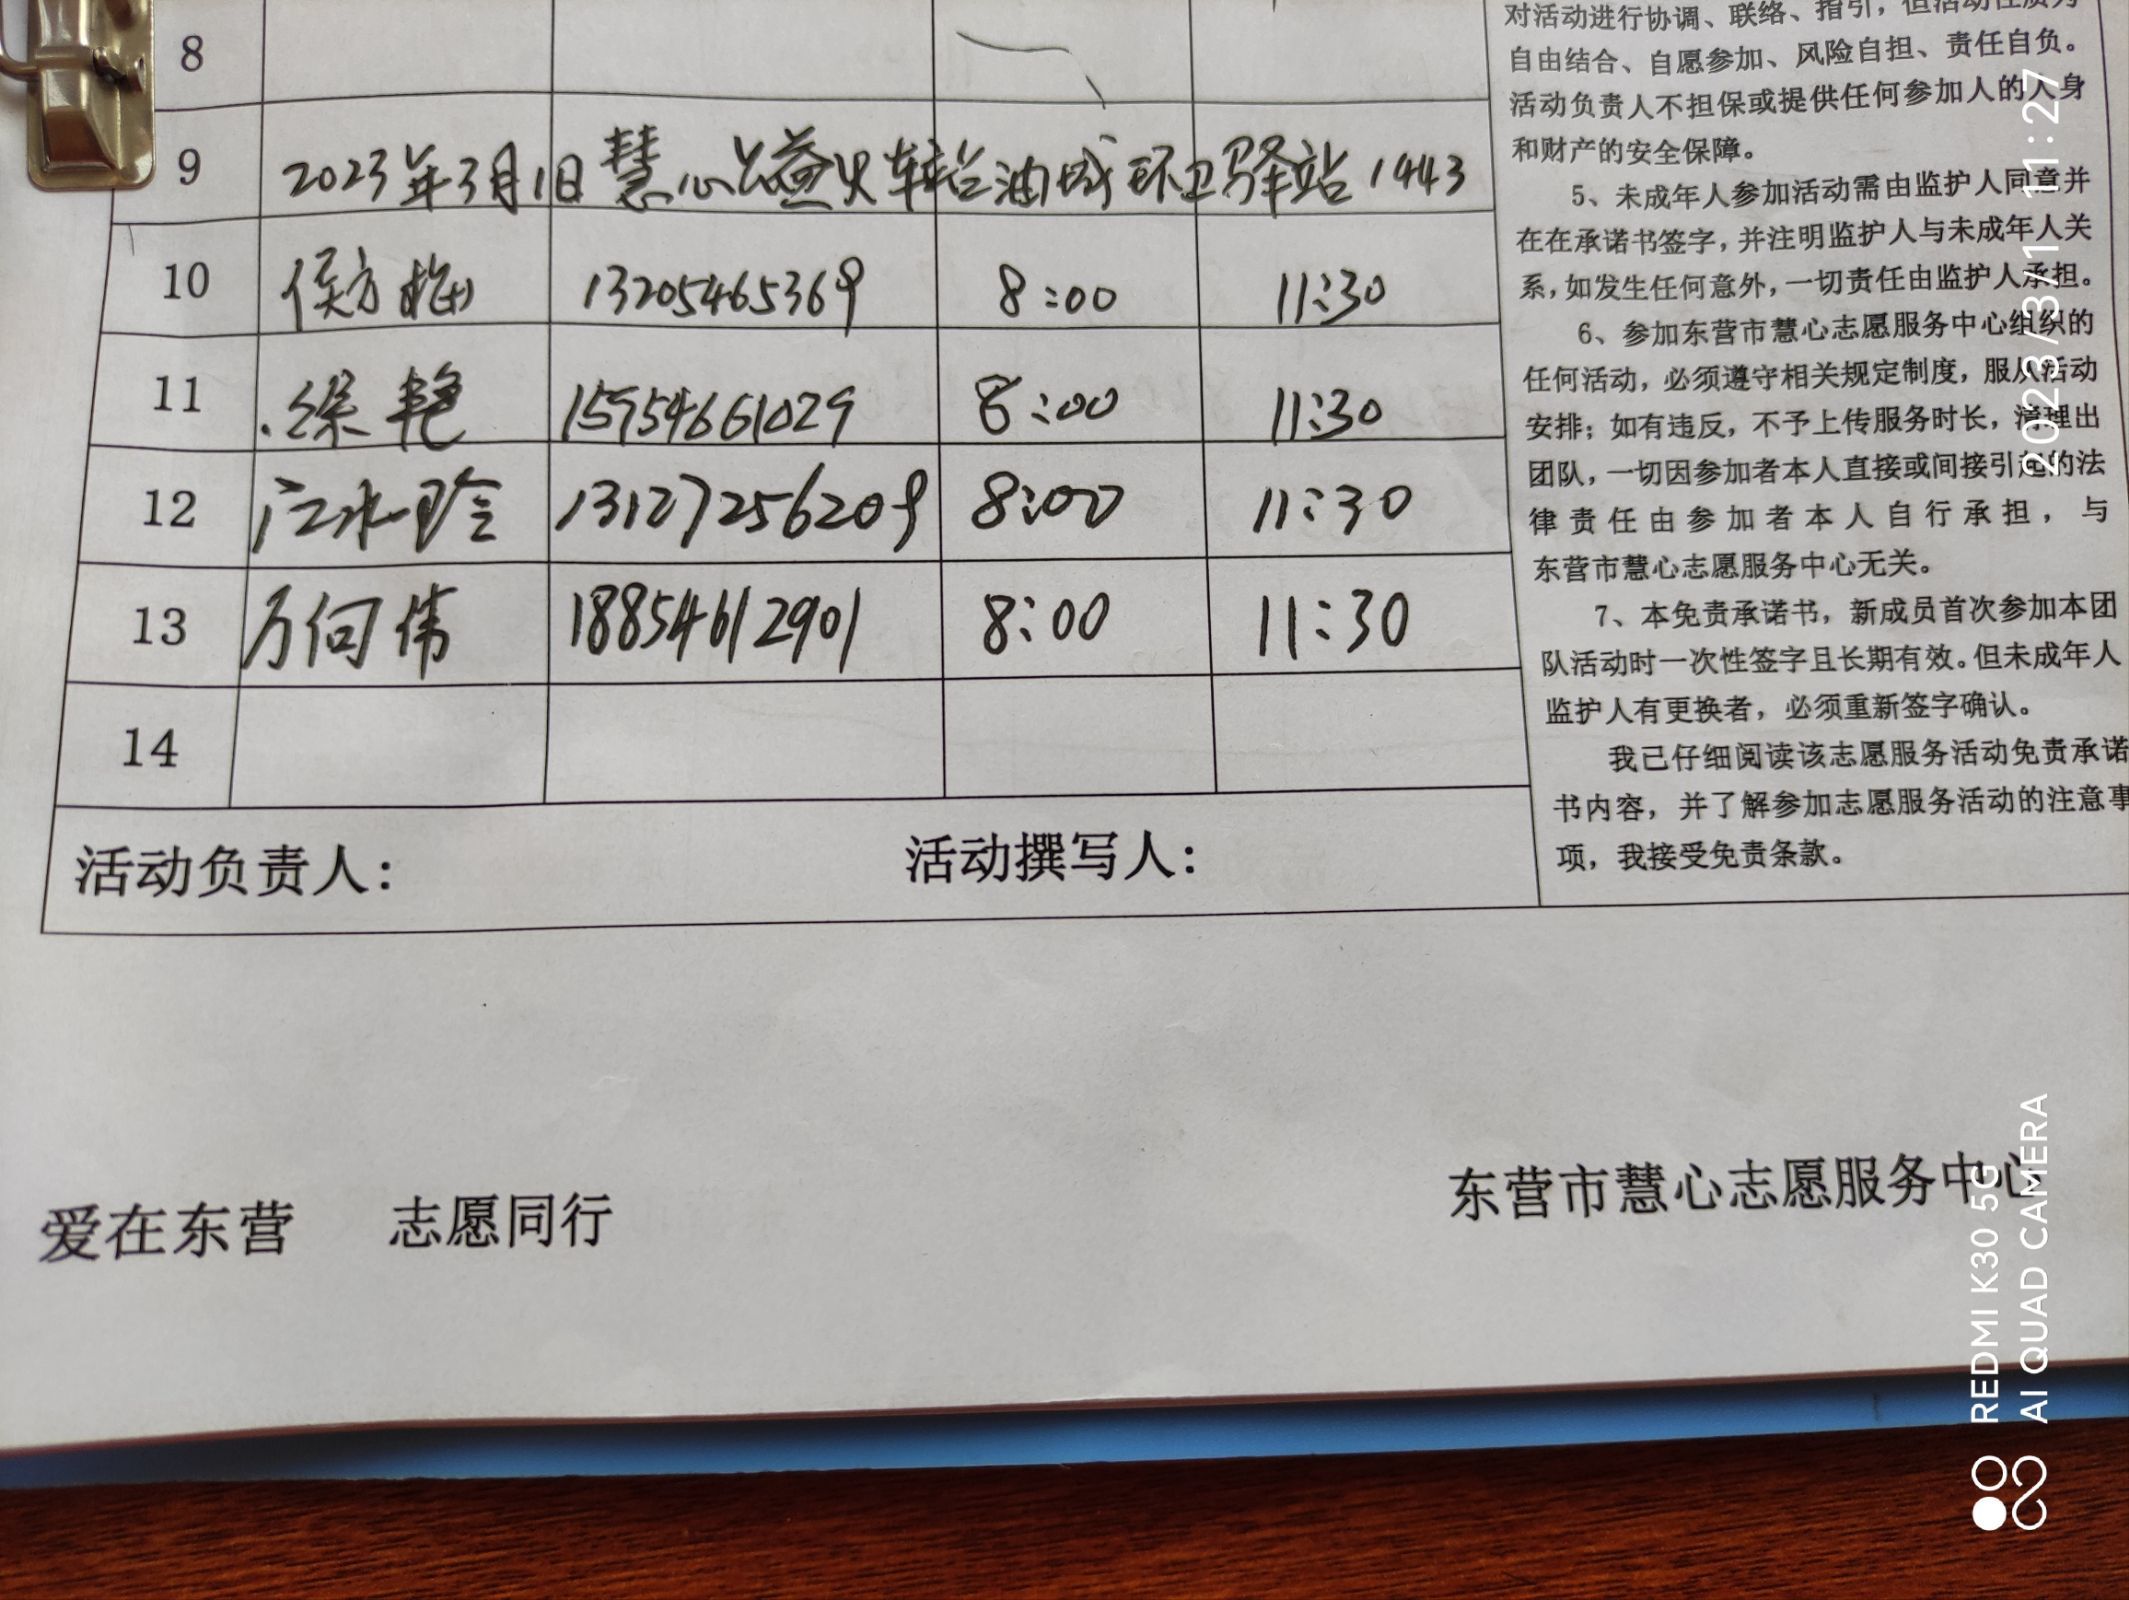 8
9 2023年3月1日慧心公益火车站油城环卫驿站1443
10 侯方梅 13205465369 8:00 11:30
11 徐艳 15954661029 8:00 11:30
12 江水玲 13127256209 8:00 11:30
13 万向伟 18854612901 8:00 11:30
14
活动负责人: 活动撰写人:
对活动进行协调、联络、指引，但活动性质为
自由结合、自愿参加、风险自担、责任自负。
活动负责人不担保或提供任何参加人的人身
和财产的安全保障。
5、未成年人参加活动需由监护人同意并
在在承诺书签字，并注明监护人与未成年人关
系，如发生任何意外，一切责任由监护人承担。
6、参加东营市慧心志愿服务中心组织的
任何活动，必须遵守相关规定制度，服从活动
安排；如有违反，不予上传服务时长，清理出
团队，一切因参加者本人直接或间接引起的法
律责任由参加者本人自行承担，与
东营市慧心志愿服务中心无关。
7、本免责承诺书，新成员首次参加本团
队活动时一次性签字且长期有效。但未成年人
监护人有更换者，必须重新签字确认。
我已仔细阅读该志愿服务活动免责承诺
书内容，并了解参加志愿服务活动的注意事
项，我接受免责条款。
爱在东营 志愿同行
东营市慧心志愿服务中心
2023/3/1 11:27
REDMI K30 5G
AI QUAD CAMERA